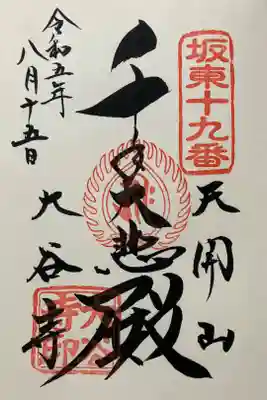 坂東十九番
天開山
千手大悲殿
大谷寺
令和五年
八月十五日